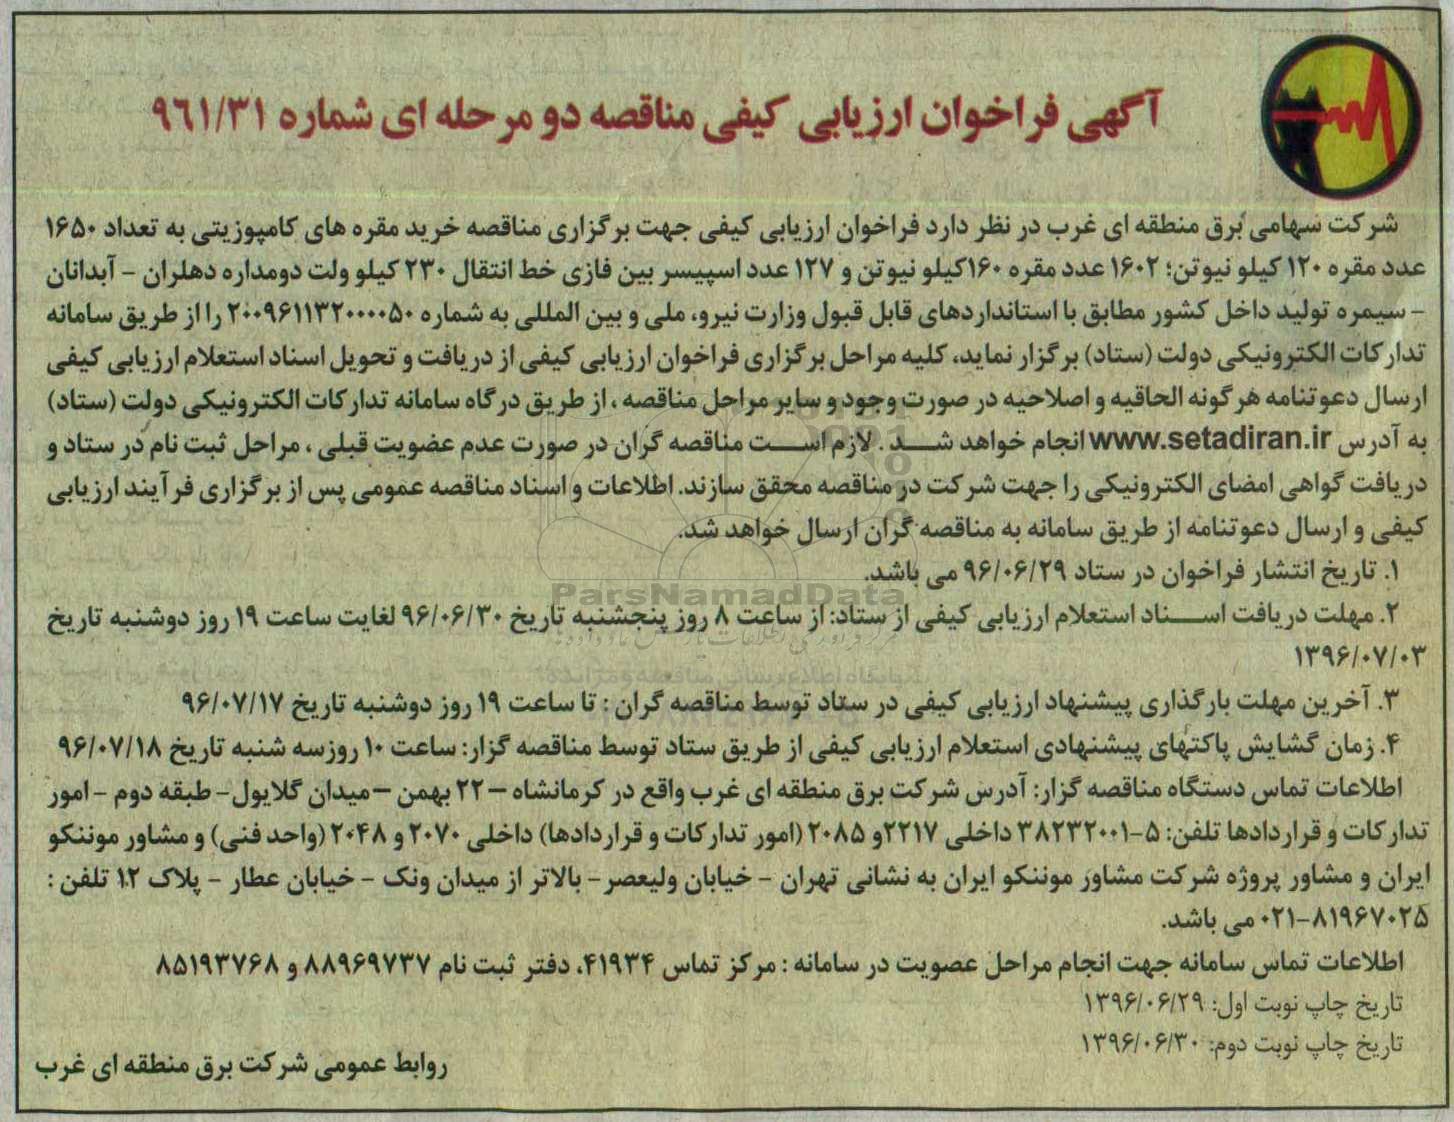 آگهی فراخوان ارزیابی کیفی مناقصه دو مرحله ای شماره ۹۶۱/۳۱
شرکت سهامی برق منطقه ای غرب در نظر دارد فراخوان ارزیابی کیفی جهت برگزاری مناقصه خرید مقره های کامپوزیتی به تعداد ۱۶۵۰
عدد مقره ۱۲۰ کیلو نیوتن؛ ۱۶۰۲ عدد مقره ۱۶۰کیلو نیوتن و ۱۲۷ عدد اسپیسر بین فازی خط انتقال ۲۳۰ کیلو ولت دومداره دهلران - آبدانان
- سیمره تولید داخل کشور مطابق با استانداردهای قابل قبول وزارت نیرو، ملی و بین المللی به شماره ۲۰۰۹۶۱۱۳۲۰۰۰۰۵۰ را از طریق سامانه
تدارکات الکترونیکی دولت (ستاد) برگزار نماید، کلیه مراحل برگزاری فراخوان ارزیابی کیفی از دریافت و تحویل اسناد استعلام ارزیابی کیفی
ارسال دعوتنامه هرگونه الحاقیه و اصلاحیه در صورت وجود و سایر مراحل مناقصه ، از طریق درگاه سامانه تدارکات الکترونیکی دولت (ستاد)
به آدرس www.setadiran.ir انجام خواهد شد . لازم است مناقصه گران در صورت عدم عضویت قبلی ، مراحل ثبت نام در ستاد و
دریافت گواهی امضای الکترونیکی را جهت شرکت در مناقصه محقق سازند. اطلاعات و اسناد مناقصه عمومی پس از برگزاری فرآیند ارزیابی
کیفی و ارسال دعوتنامه از طریق سامانه به مناقصه گران ارسال خواهد شد.
۱. تاریخ انتشار فراخوان در ستاد ۹۶/۰۶/۲۹ می باشد.
ParsNamadData
۲. مهلت دریافت اسناد استعلام ارزیابی کیفی از ستاد: از ساعت ۸ روز پنجشنبه تاریخ ۹۶/۰۶/۳۰ لغایت ساعت ۱۹ روز دوشنبه تاریخ
۱۳۹۶/۰۷/۰۳
پایگاه اطلاع رسانی مناقصه و مزایده
۳. آخرین مهلت بارگذاری پیشنهاد ارزیابی کیفی در ستاد توسط مناقصه گران : تا ساعت ۱۹ روز دوشنبه تاریخ ۹۶/۰۷/۱۷
۴. زمان گشایش پاکتهای پیشنهادی استعلام ارزیابی کیفی از طریق ستاد توسط مناقصه گزار: ساعت ۱۰ روزسه شنبه تاریخ ۹۶/۰۷/۱۸
اطلاعات تماس دستگاه مناقصه گزار: آدرس شرکت برق منطقه ای غرب واقع در کرمانشاه –۲۲ بهمن –میدان گلایول- طبقه دوم - امور
تدارکات و قراردادها تلفن: ۵-۳۸۲۳۲۰۰۱ داخلی ۲۲۱۷و ۲۰۸۵ (امور تدارکات و قراردادها) داخلی ۲۰۷۰ و ۲۰۴۸ (واحد فنی) و مشاور موننکو
ایران و مشاور پروژه شرکت مشاور موننکو ایران به نشانی تهران - خیابان ولیعصر- بالاتر از میدان ونک - خیابان عطار - پلاک ۱۲ تلفن :
۰۲۱-۸۱۹۶۷۰۲۵ می باشد.
اطلاعات تماس سامانه جهت انجام مراحل عصویت در سامانه : مرکز تماس ۴۱۹۳۴، دفتر ثبت نام ۸۸۹۶۹۷۳۷ و ۸۵۱۹۳۷۶۸
تاریخ چاپ نوبت اول: ۱۳۹۶/۰۶/۲۹
تاریخ چاپ نوبت دوم: ۱۳۹۶/۰۶/۳۰
روابط عمومی شرکت برق منطقه ای غرب